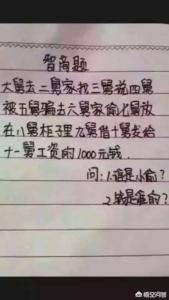 智商题
大舅去二舅家找三舅说四舅
被五舅骗去六舅家偷七舅放
在八舅柜子里九舅借十舅去给
十一舅工资的1000元钱.
问:1.谁是小偷?
2.钱是谁的?
悟空问答